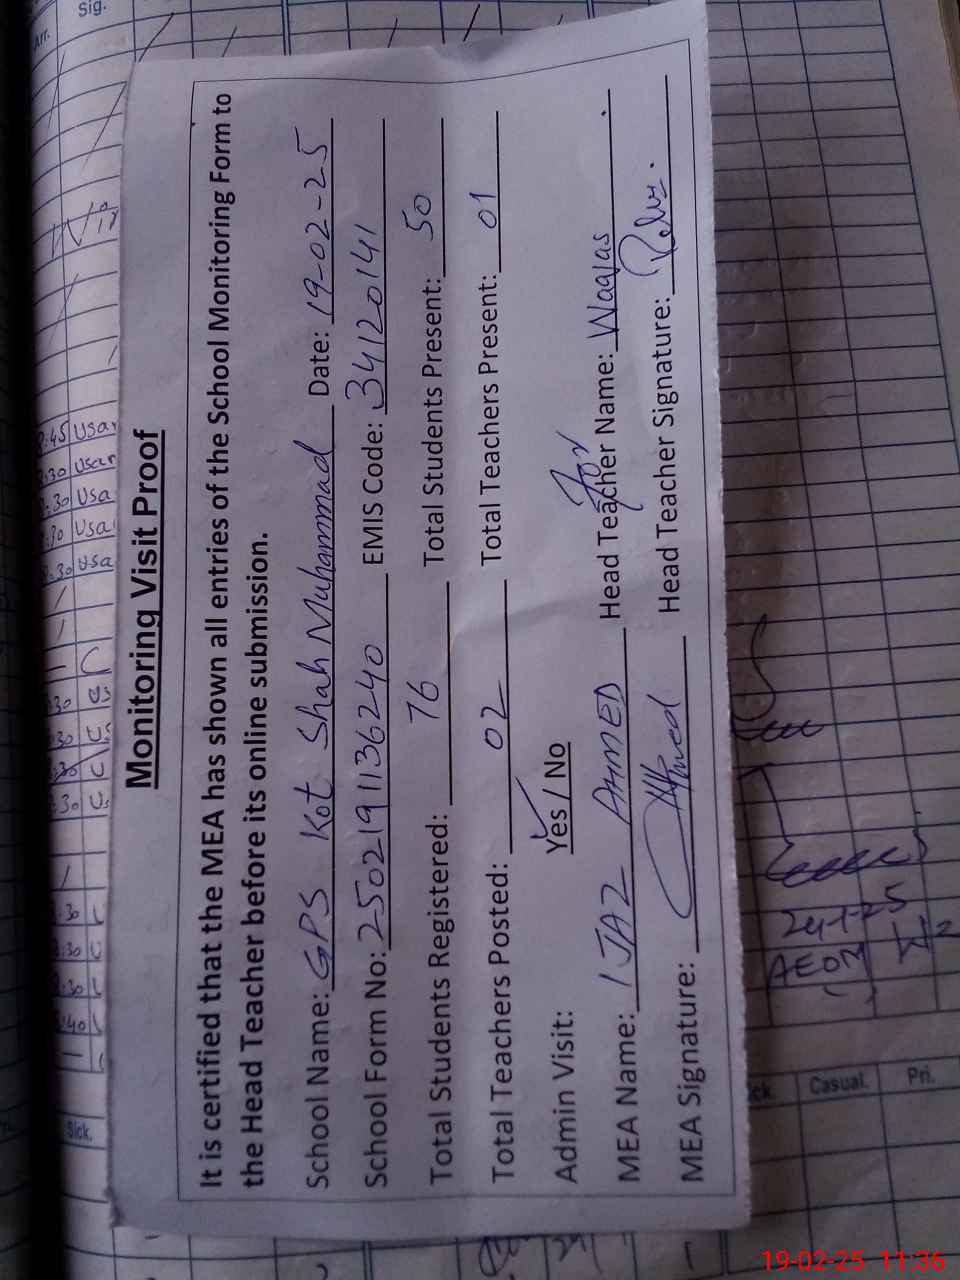 Monitoring Visit Proof
It is certified that the MEA has shown all entries of the School Monitoring Form to
the Head Teacher before its online submission.
School Name: GPS Kot Shah Muhammad Date: 19-02-25
School Form No: 2502191136240 EMIS Code: 34120141
Total Students Registered: 76 Total Students Present: 50
Total Teachers Posted: 02 Total Teachers Present: 01
Admin Visit: Yes / No
For
MEA Name: IJAZ AHMED Head Teacher Name: Waqas
MEA Signature: Ahmed Head Teacher Signature:
Sig.
Arr.
8:45 Usa
8:30 Usa
:30 Usa
:30 Usa
:30 Usa
Sick.
Casual.
Pri.
24-1-25
AEO
19-02-25 11:36